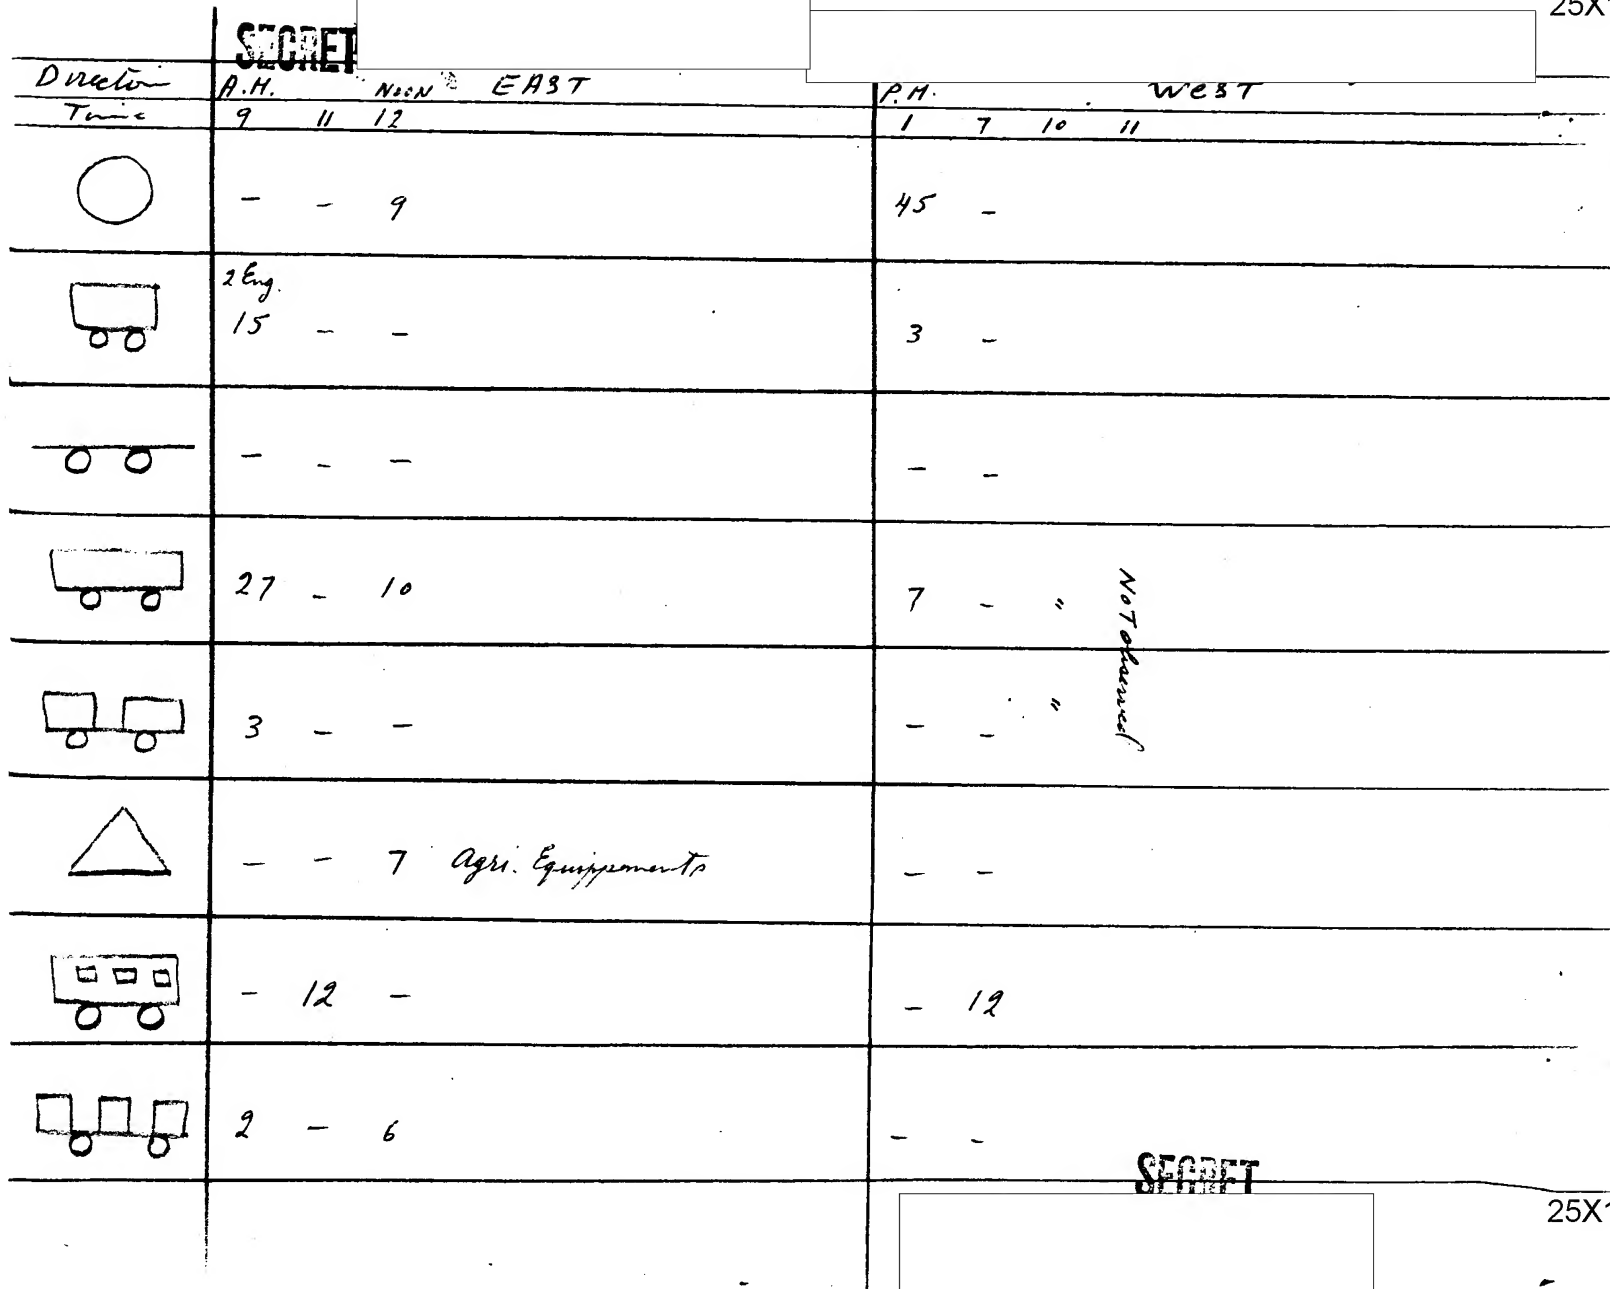 25X1
SECRET
Direction A.M. NOON EAST P.M. WEST
Time 9 11 12 1 7 10 11
- - 9 45 -
2 Eng.
15 - - 3 -
- - - - -
27 - 10 7 - "
Not observed
3 - - - - "
- - 7 Agri. Equippements - -
- 12 - - 12
2 - 6 - -
SECRET
25X1